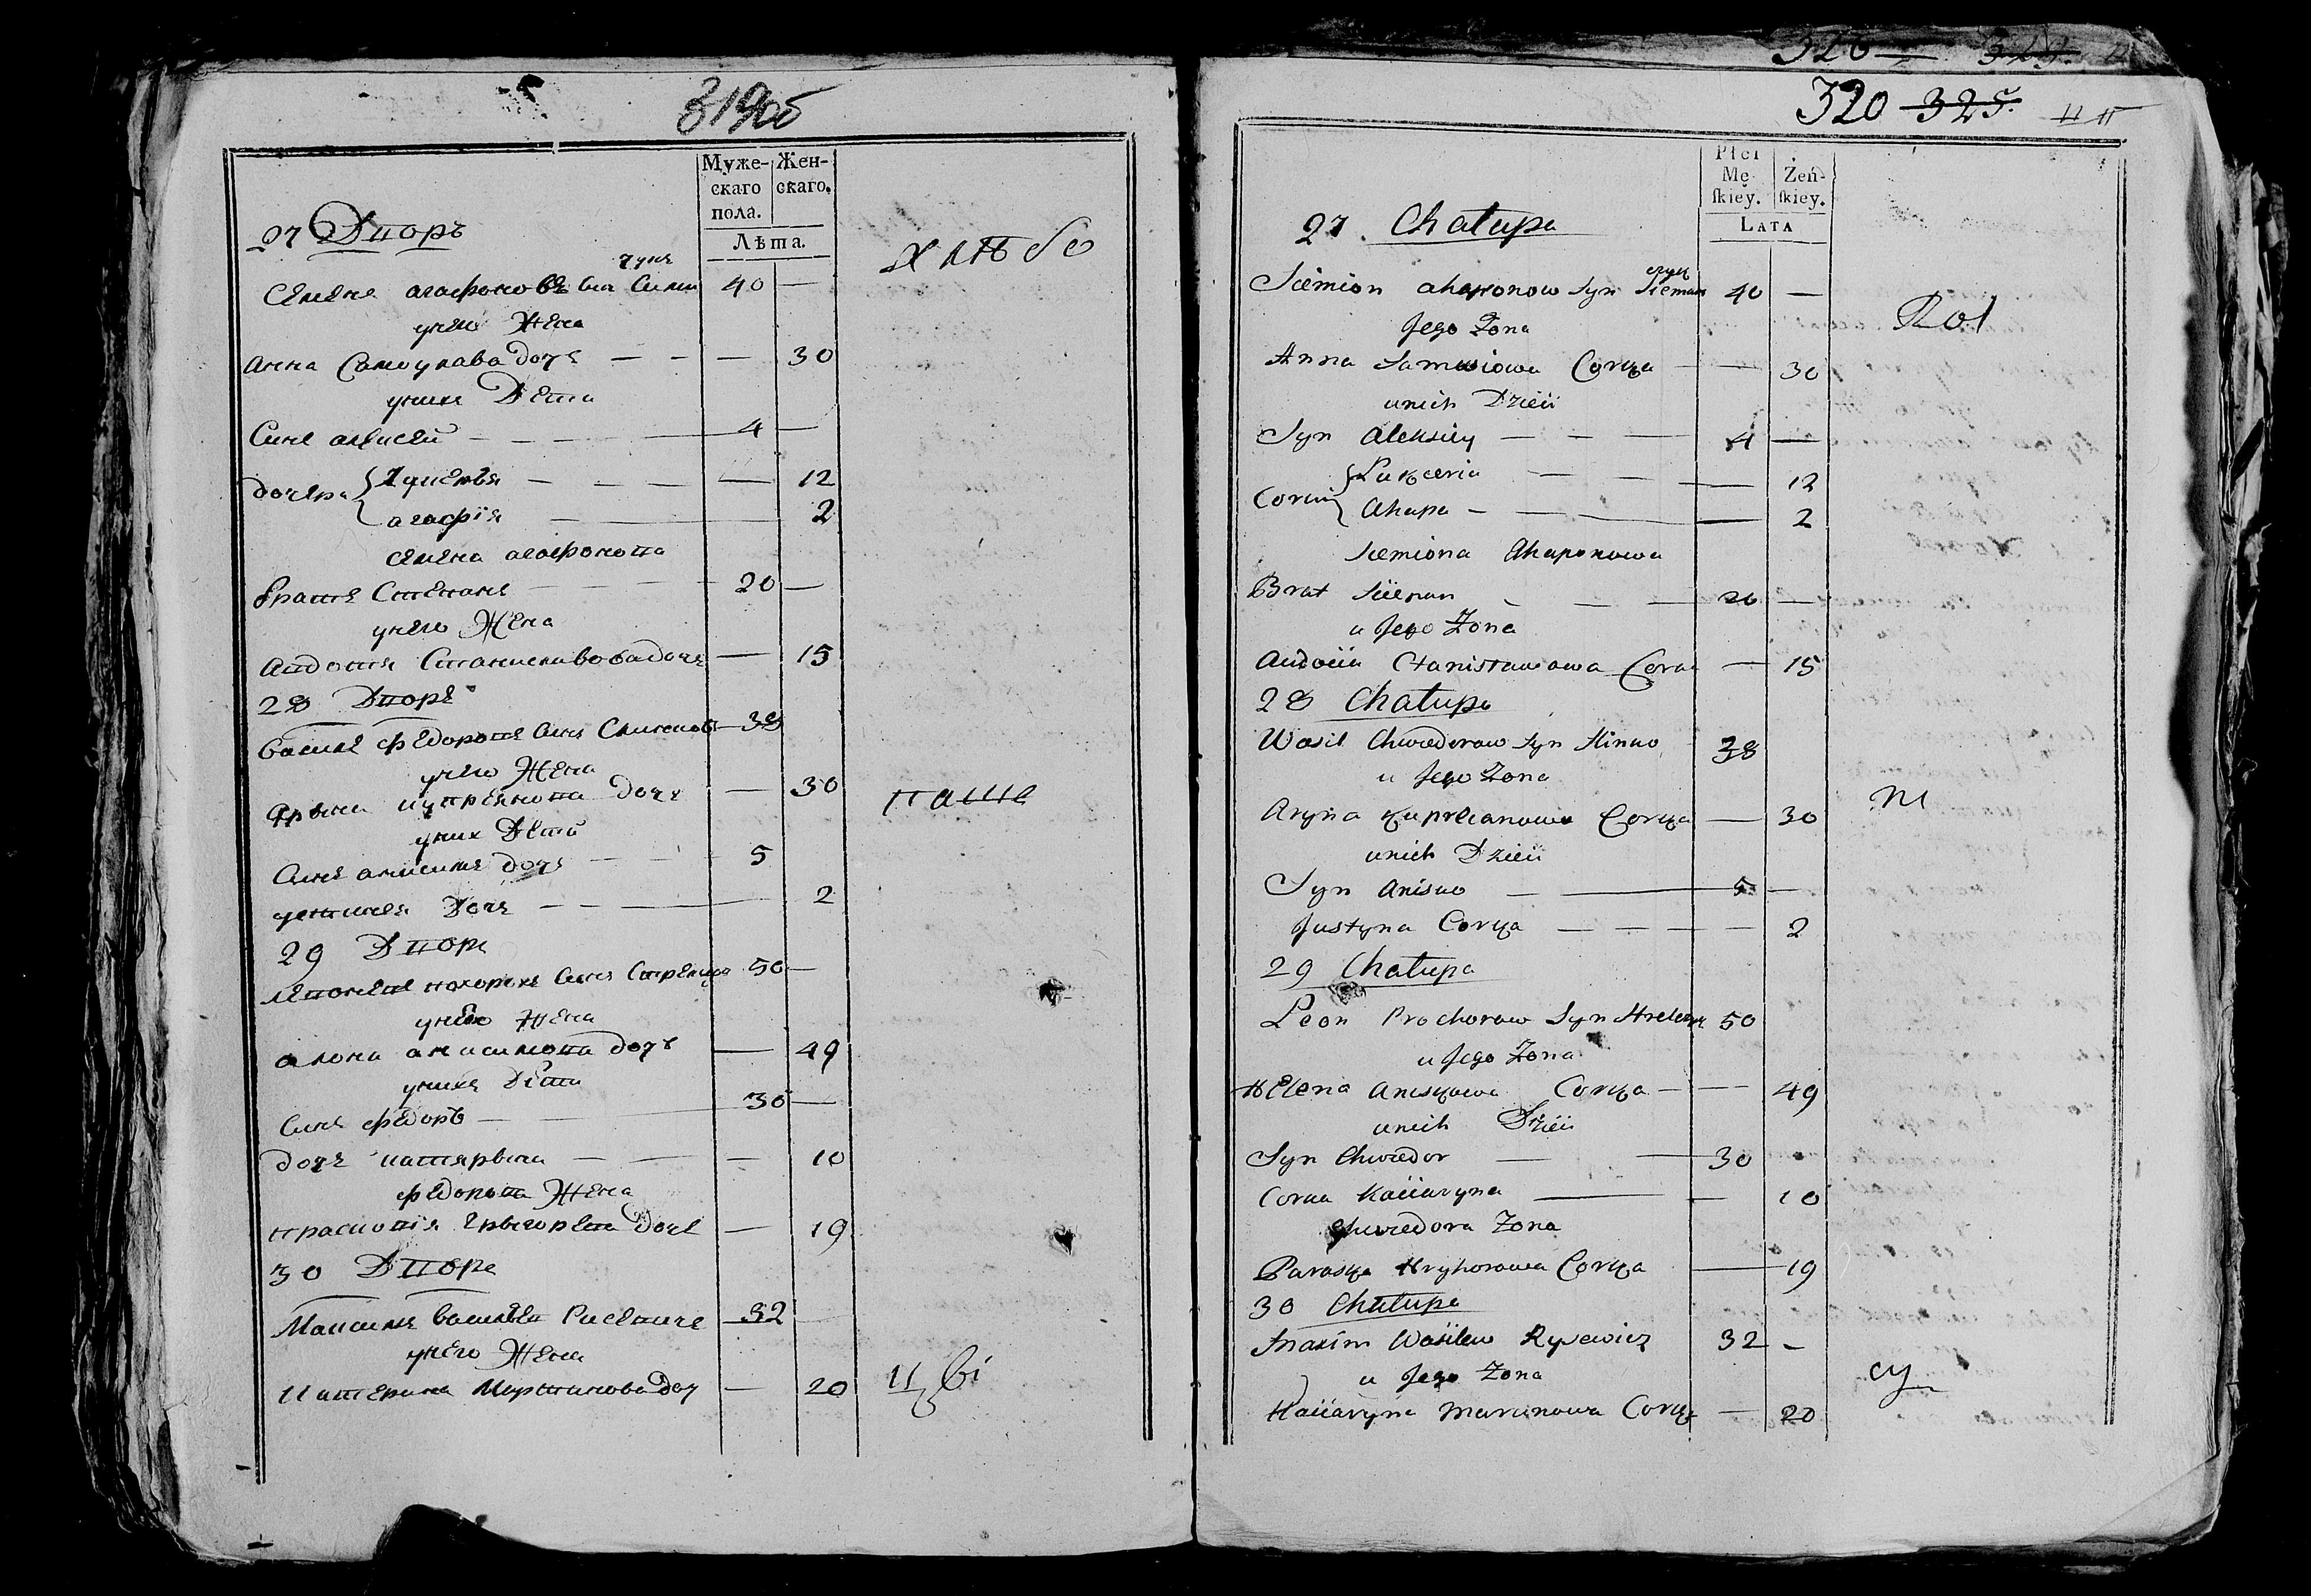 319об
Муже- Жен-
скаго скаго.
пола.
Лѣта.
27 Дворъ
хлѣбо
Семенъ агафоновъ Синъ 40 —
унего Жена
Анна Самоулава дочъ — — — 30
унихъ Дети
Синъ алексей — — — 4 —
дочери { Лукерья — — — — 12
агафія — — 2
Семена агафонова
братъ Степанъ — — 20 —
унего Жена
Авдотя Станиславова дочъ — 15
28 Дворъ
Василъ федоровъ Синъ 38
унего Жена
Арына купреянова дочъ — 30
паше
уних Дети
Синъ анисимъ 5
устиня Дочъ — — 2
29 Дворъ
Синъ 50 —
унего Жена
алона анисимова дочъ — 49
унихъ Дети
Синъ федоръ — 30 —
дочъ катярына — — — 10
федорова Жена
прасковія Грыгорева Дочъ — 19
30 Дворъ
Максимъ василевъ 32
унего Жена
Катерина Мартинова Доч — 20
320 325.
Płci
Mę- Żeń-
ſkiey. ſkiey.
LATA
27 Chałupa
Siemion ahaponow Syn 40 —
Jego Zona
Rol
Anna Samusiowa Corka — — 30
unich Dzieci
Syn Aleksiey — — — 4 —
Corki { Łukceria — — — 12
Ahapa — — — 2
Siemiona Ahaponowa
Brat Sciepan — — — 20 —
u Jego Zona
Audocia Stanisławowa Corka — 15
28 Chałupa
Wasil Chwiedorow Syn 38
u Jego Zona
Aryna Kupreianowa Corka — 30
unich Dzieci
Syn Anisko — — 5 —
Justyna Corka — — — — 2
29 Chałupa
Leon Prochorow Syn 50
u Jego Zona
Helena Aniskowa Corka — — 49
unich Dzieci
Syn Chwiedor — — 30
Corka Kaciaryna — — 10
Chwiedora Zona
Paraska Hryhorowa Corka — 19
30 Chałupa
Maxim Wasilew Rysewicz 32 —
u Jego Zona
Kaciaryna Marcinowa Corka — 20